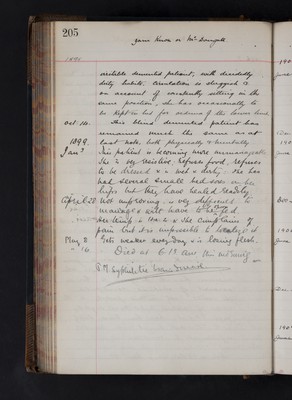 205
Jane Knox or McDougall
1898
irritable demented patient, with decidedly
dirty habits. Circulation is sluggish &
on account of constantly sitting in the
same position, she has occasionally to
be kept in bed for oedema of the lower limbs
Oct. 10. This blind demented patient has
remained much the same as at
1899 last note, both physically & mentally
Jany This patient is becoming more unmanageable
She is very resistive, refuses food, refuses
to be dressed & is wet & dirty. She has
had several small bed sores on her
hips but they have healed readily
April 28 Not improving. is very difficult to
manage & will have to be fed.
pain but it is impossible to
May 2 Gets weaker every day & is losing flesh.
" 16 Died at 6.15 am this morning
P.M.